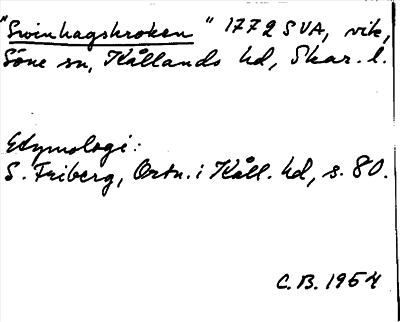 "Swinhagskroken" 1772 SVA, vik,
Söne sn, Kållands hd, Skar. l.
Etymologi:
S. Friberg, Ortn. i Kåll. hd, s. 80.
C.B. 1954